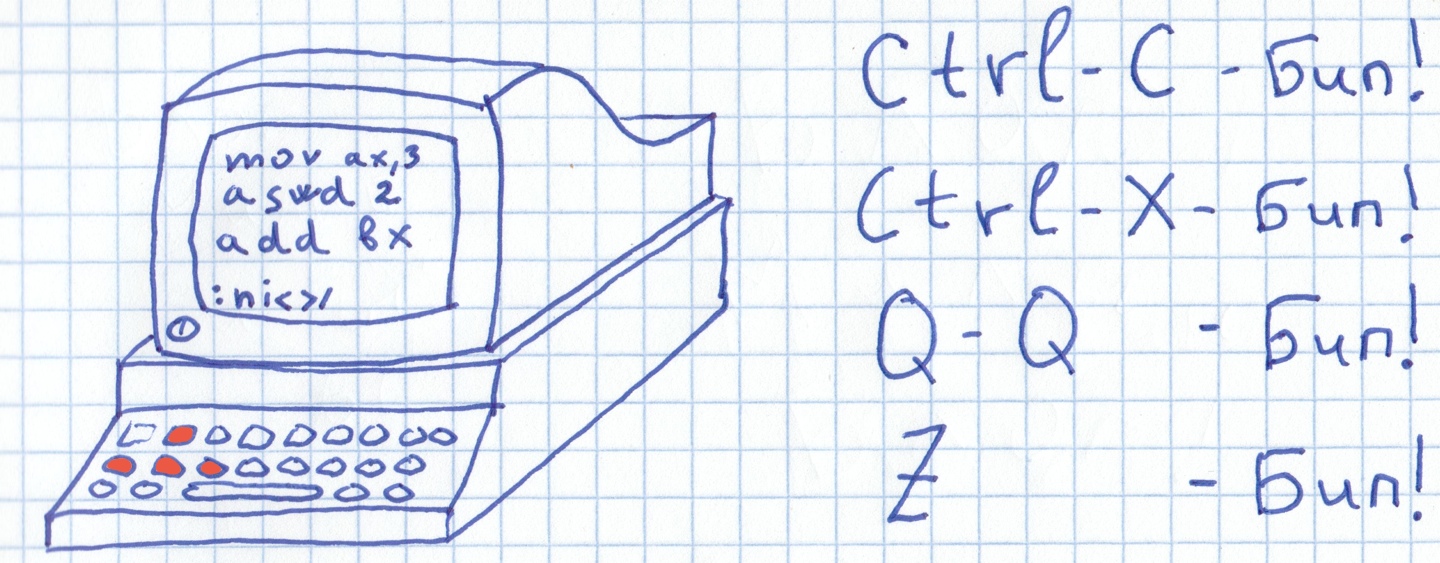 mov ax,3
aswd 2
add bx
:ni<>/
Ctrl-C - Бип!
Ctrl-X- Бип!
Q-Q - Бип!
Z - Бип!